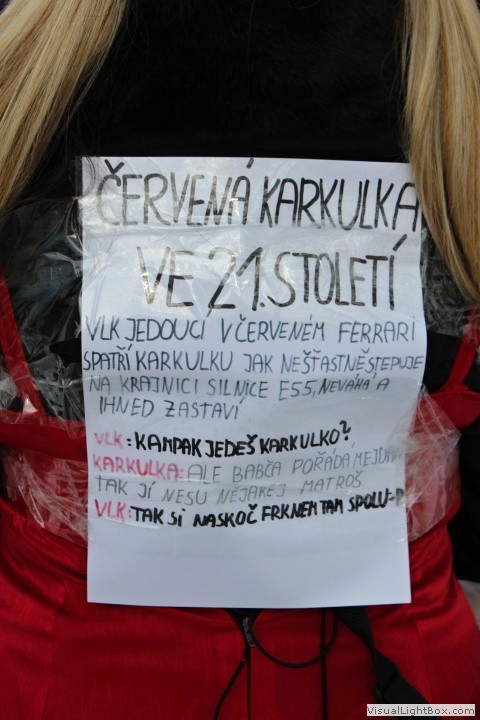 ČERVENÁ KARKULKA
VE 21. STOLETÍ
VLK JEDOUCÍ V ČERVENÉM FERRARI
SPATŘÍ KARKULKU JAK NEŠŤASTNĚ STEPUJE
NA KRAJNICI SILNICE E55, NEVÁHÁ A
IHNED ZASTAVÍ
VLK: KAMPAK JEDEŠ KARKULKO?
KARKULKA: ALE BABČA POŘÁDÁ MEJDAN
TAK JÍ NESU NĚJAKEJ MATROŠ
VLK: TAK SI NASKOČ FRKNEM TAM SPOLU:-P
VisualLightBox.com